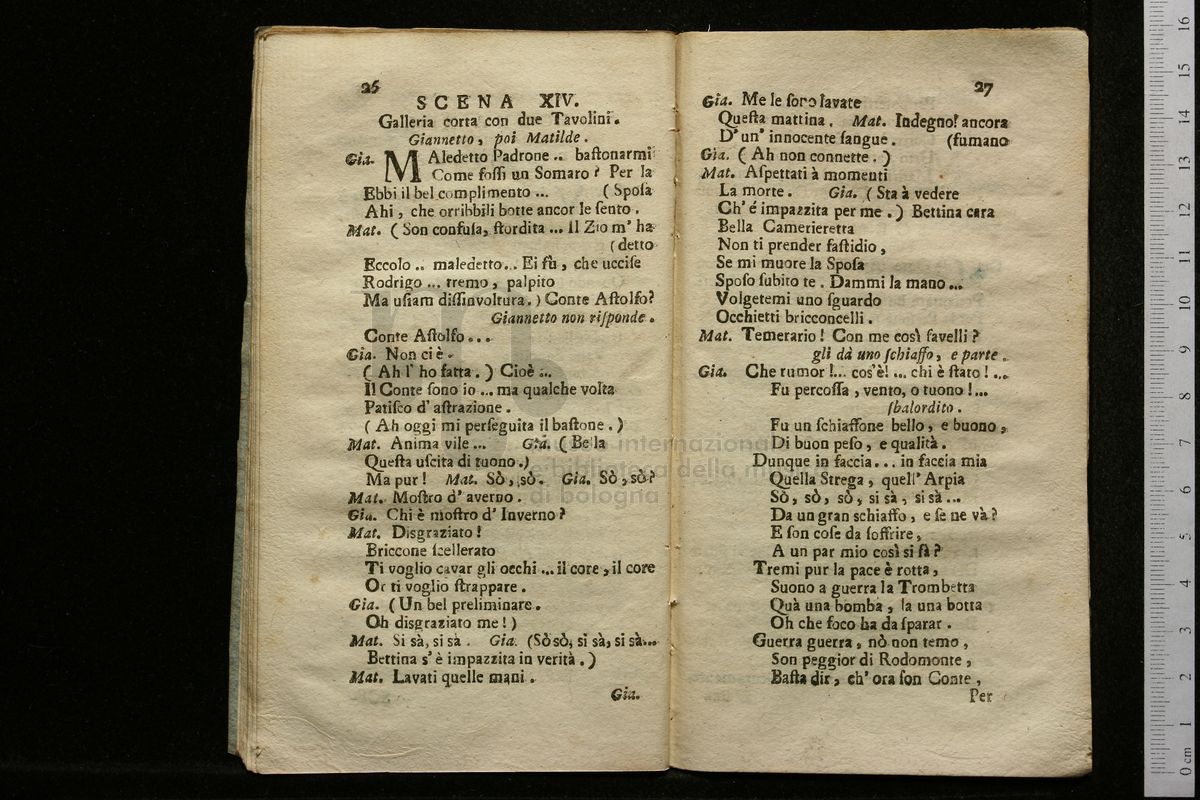 26
SCENA XIV.
Galleria corta con due Tavolini.
Giannetto, poi Matilde.
Gia. MAledetto Padrone .. baſtonarmi
Come foſſi un Somaro? Per la
Ebbi il bel complimento ... (Spoſa
Ahi, che orribbili botte ancor le ſento.
Mat. (Son confuſa, ſtordita ... Il Zio m' ha
(detto
Eccolo .. maledetto... Ei fù, che ucciſe
Rodrigo ... tremo, palpito
Ma uſiam diſſinvoltura.) Conte Aſtolfo?
Giannetto non riſponde.
Conte Aſtolfo...
Gia. Non ci è.
(Ah l' ho fatta.) Cioè ...
Il Conte ſono io ... ma qualche volta
Patiſco d' aſtrazione.
(Ah oggi mi perſeguita il baſtone.)
Mat. Anima vile ... Gia. (Bella
Queſta uſcita di tuono.)
Ma pur! Mat. Sò, sò. Gia. Sò, sò?
Mat. Moſtro d' averno.
Gia. Chi è moſtro d' Inverno?
Mat. Disgraziato!
Briccone ſcellerato
Ti voglio cavar gli occhi ... il core, il core
Or ti voglio ſtrappare.
Gia. (Un bel preliminare.
Oh disgraziato me!)
Mat. Si sà, si sà. Gia. (Sò sò, si sà, si sà...
Bettina s' è impazzita in verità.)
Mat. Lavati quelle mani.
Gia.
27
Gia. Me le ſono lavate
Queſta mattina. Mat. Indegno! ancora
D' un' innocente ſangue. (fumano
Gia. (Ah non connette.)
Mat. Aſpettati à momenti
La morte. Gia. (Sta à vedere
Ch' é impazzita per me.) Bettina cara
Bella Camerieretta
Non ti prender faſtidio,
Se mi muore la Spoſa
Spoſo ſubito te. Dammi la mano...
Volgetemi uno ſguardo
Occhietti bricconcelli.
Mat. Temerario! Con me così favelli?
gli dà uno ſchiaffo, e parte.
Gia. Che rumor!... cos'è!... chi è ſtato!...
Fu percoſſa, vento, o tuono!...
ſbalordito.
Fu un ſchiaffone bello, e buono,
Di buon peſo, e qualità.
Dunque in faccia... in faccia mia
Quella Strega, quell' Arpia
Sò, sò, sò, si sà, si sà...
Da un gran schiaffo, e ſe ne và?
E ſon coſe da ſoffrire,
A un par mio così si fà?
Tremi pur la pace è rotta,
Suono a guerra la Trombetta
Quà una bomba, la una botta
Oh che foco ha da ſparar.
Guerra guerra, nò non temo,
Son peggior di Rodomonte,
Baſta dir, ch' ora ſon Conte,
Per
museo internazionale
e biblioteca della musica
di bologna
0 cm 1 2 3 4 5 6 7 8 9 10 11 12 13 14 15 16